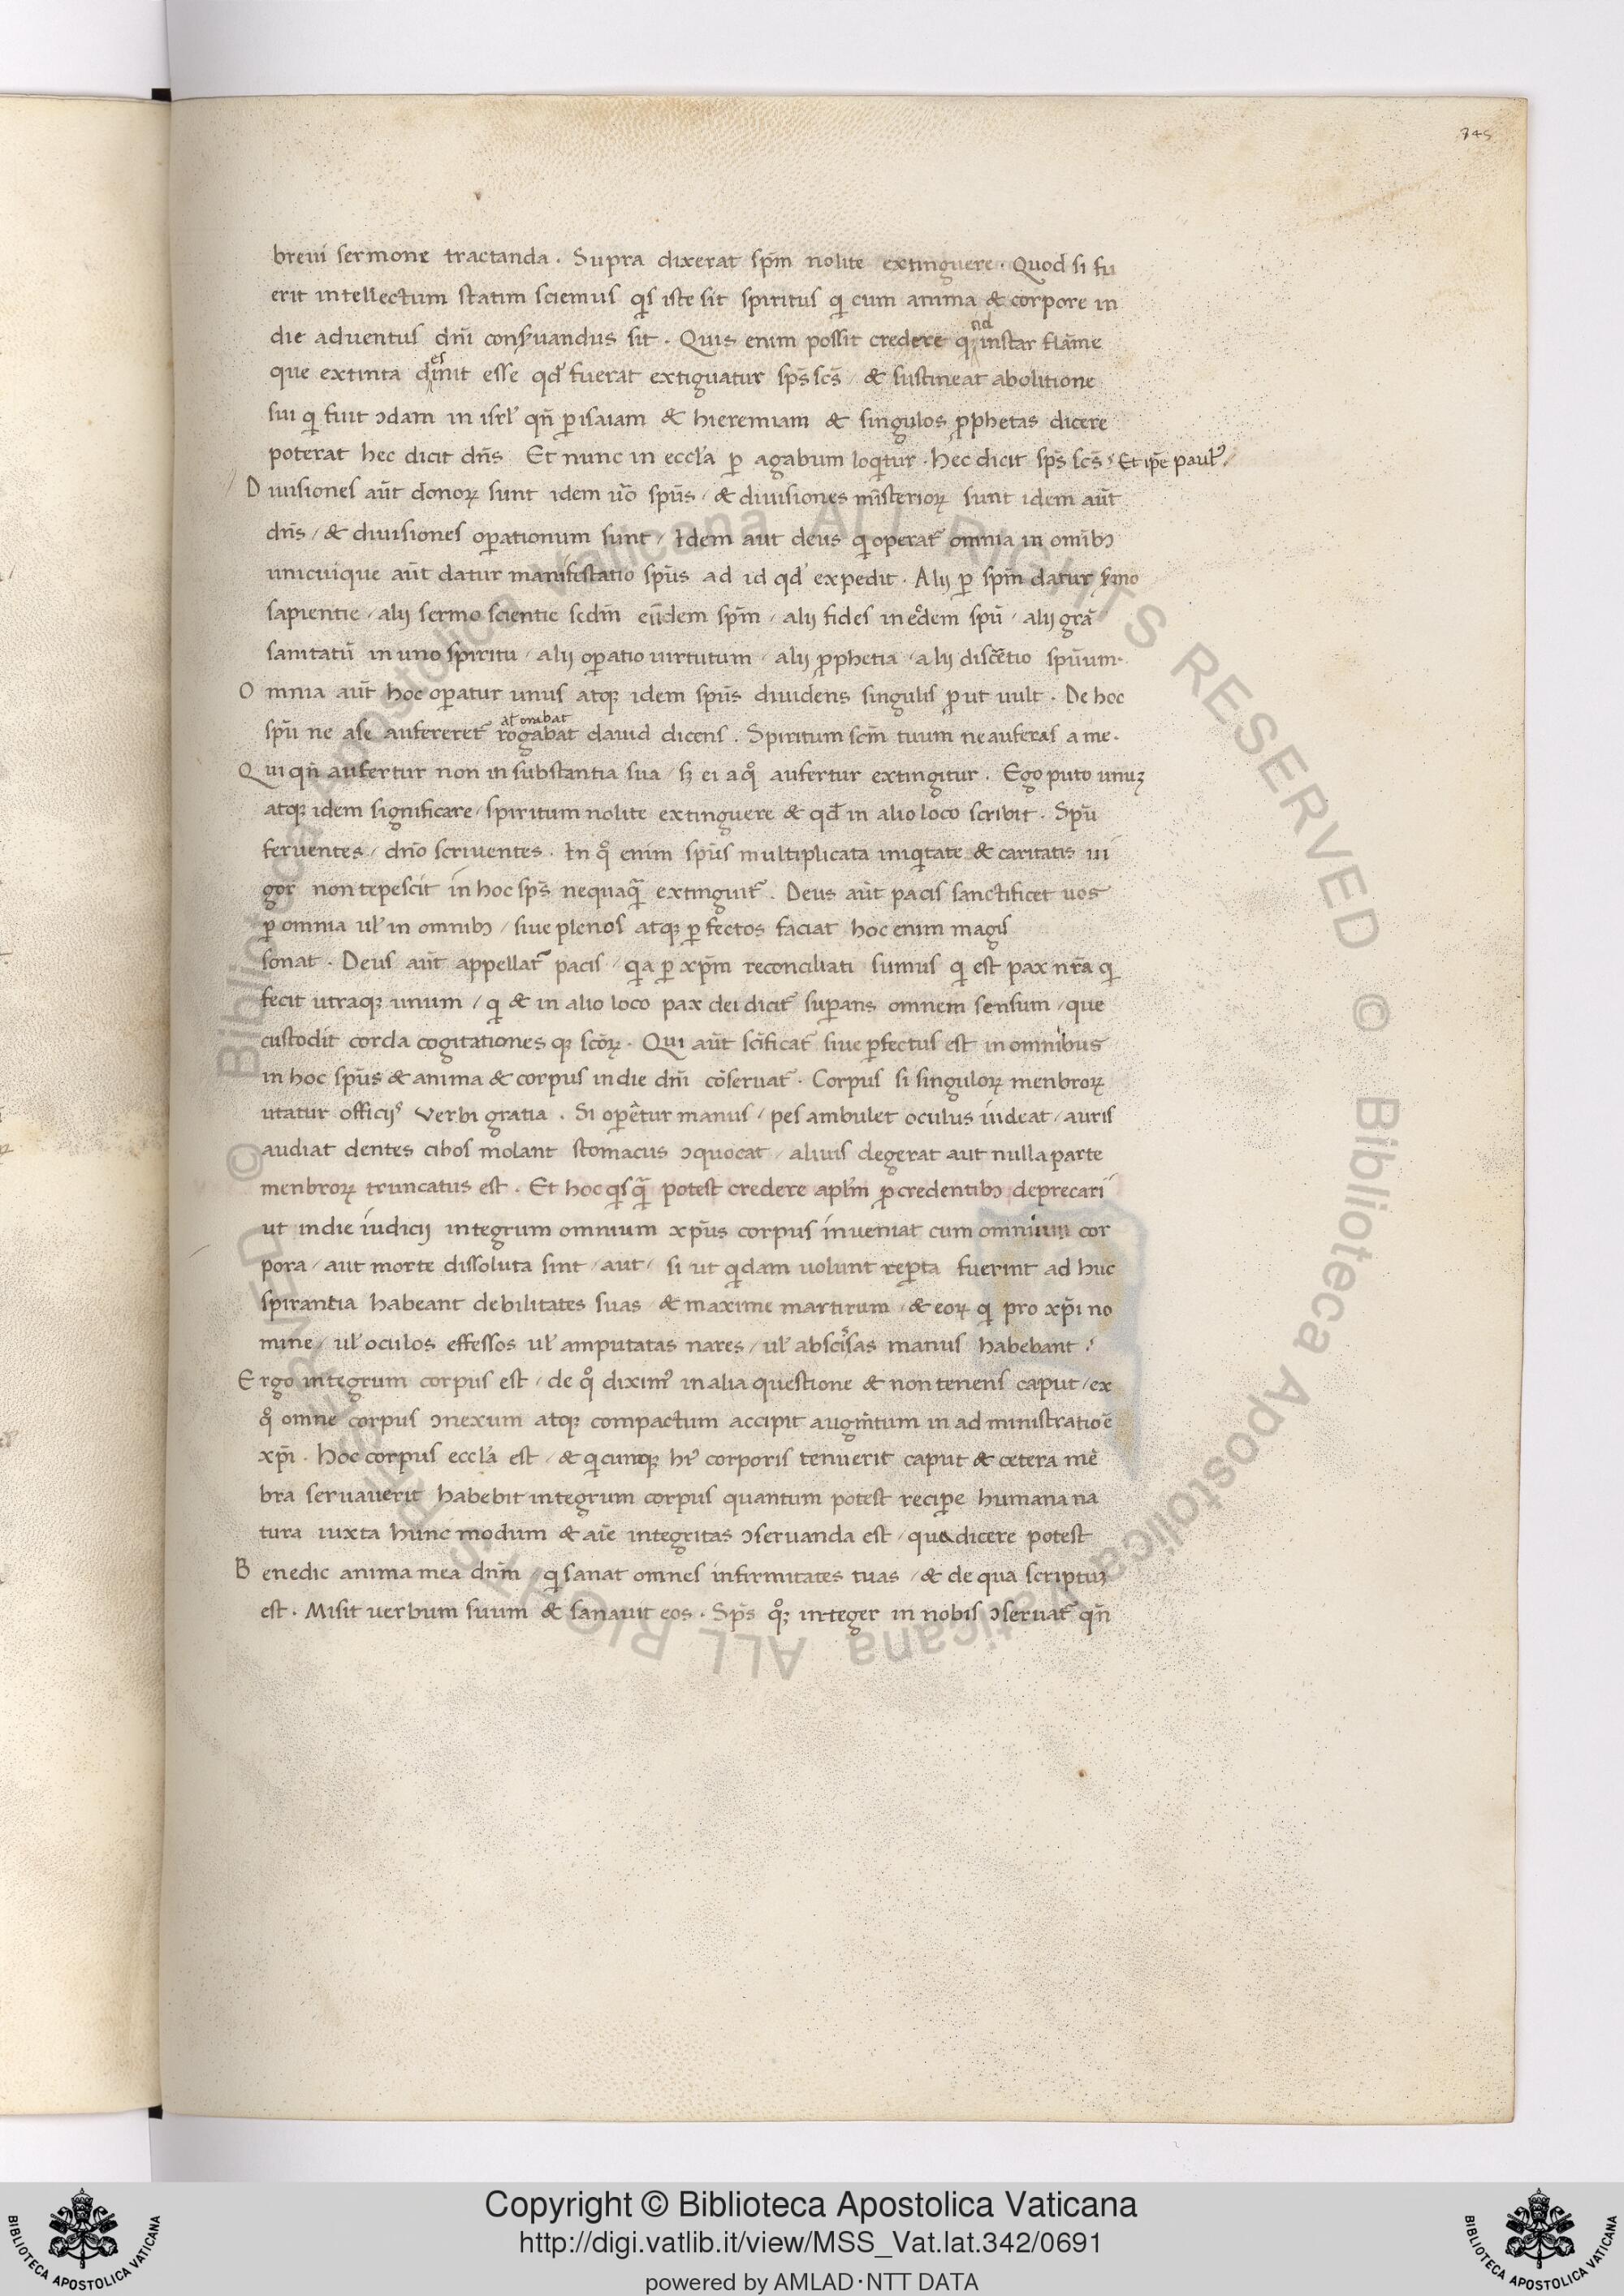 345
breui sermone tractanda . Supra dixerat spm̄ nolite extinguere . Quod si fu
erit intellectum statim sciemus qis iste sit spiritus qi cum anima & corpore in
die aduentus dnī conẜuandus sit . Quis enim possit credere q nd instar flāme
que extinta dinit es esse qd̕ fuerat extiguatur sps̄ scs̄ / & sustineat abolitione
sui qi fuit ɔdam in isrl̕ qn̄ ꝑ isaiam & hieremiam & singulos ꝓphetas dicere
poterat hec dicit dns̄ Et nunc in eccl̕a ꝑ agabum loqitur . Hec dicit sps̄ scs̄ . Et ipe̅ paul̕ /
D iuisiones aūt donoꝝ sunt idem uo̅ spūs / & diuisiones mi̅steriorꝝ sunt idem aūt
dns̄ / & diuisiones oꝑationum sunt / Idem aut deus qi operat᷑ omnia in omi̅bꝫ
unicuique aūt datur manifestatio spūs ad id qd̕ expedit . Alij ꝑ spm̄ datur ẜmo
sapientie / alij sermo scientie scdm̄ eūdem spm̄ / alij fides in eodem spū / alij gra̅
sanitatū in uno spiritu / alij oꝑatio uirtutum / alij ꝓphetia / alij discetio spūum .
O mnia aūt hoc oꝑatur unus atqꝫ idem spūs diuidens singulis ꝓut uult . De hoc
spū ne a se aufereret᷑ rogabat al̕ orabat dauid dicens . Spiritum scm̄ tuum ne auferas a me .
Q ui qn̄ aufertur non in substantia sua / sꝫ ei a qo aufertur extingitur . Ego puto unuꝫ
atqꝫ idem significare / spiritum nolite extinguere & qd̄ in alio loco scribit . Spū
feruentes / dno̅ scriuentes . In qo enim spūs multiplicata iniqitate & caritatis ui
gor non tepescit in hoc sps̄ nequaqa̅ extinguit᷑ . Deus aūt pacis sanctificet uos
ꝑ omnia ul̕ in omnibꝫ / siue plenos atqꝫ ꝑfectos faciat hoc enim magis
sonat . Deus aūt appellat᷑ pacis / qia ꝑ xpm̄ reconciliati sumus qi est pax nr̄a qi
fecit utraqꝫ unum / qi & in alio loco pax dei dicit᷑ suꝑans omnem sensum / que
custodit corda cogitationes qꝫ sco̅rꝝ . Qui aūt sci̅ficat᷑ siue ꝑfectus est in omnibus
in hoc spūs & anima & corpus in die dnī co̅seruat᷑ . Corpus si singulorꝝ menbrorꝝ
utatur officijs Verbi gratia . Si operetur manus / pes ambulet oculus iudeat / auris
audiat dentes cibos molant stomacus ɔquocat / aluus degerat aut nulla parte
menbrorꝝ truncatus est . Et hoc qisqa̅ potest credere apl̕m ꝓ credentibꝫ deprecari
ut in die iudicij integrum omnium xpūs corpus inueniat cum omnium cor
pora / aut morte dissoluta sint / aut / si ut qidam uolunt reꝑta fuerint ad huc
spirantia habeant debilitates suas / & maxime martirum / & eorꝝ qi pro xpi̅ no
mine / ul̕ oculos effessos ul̕ amputatas nares / ul̕ abscisas manus habebant ?
E rgo integrum corpus est / de qo diximꝰ in alia questione & non tenens caput / ex
qo omne corpus ɔnexum atqꝫ compactum accipit augm̄tum in ad ministratioe̅
xpi̅ . Hoc corpus eccl̕a est / & qicunqꝫ hꝰ corporis tenuerit caput & cetera me̅
bra seruauerit habebit integrum corpus quantum potest reciꝑe humana na
tura iuxta hunc modum & aie̅ integritas ɔseruanda est / que dicere potest
B enedic anima mea dnm̄ / qi sanat omnes infirmitates tuas / & de qua scriptuꝫ
est . Misit uerbum suum & sanauit eos . Sps̄ qoꝫ integer in nobis ɔseruat᷑ qn̄
Copyright © Biblioteca Apostolica Vaticana
http://digi.vatlib.it/view/MSS_Vat.lat.342/0691
powered by AMLAD·NTT DATA
BIBLIOTECA APOSTOLICA VATICANA
BIBLIOTECA APOSTOLICA VATICANA